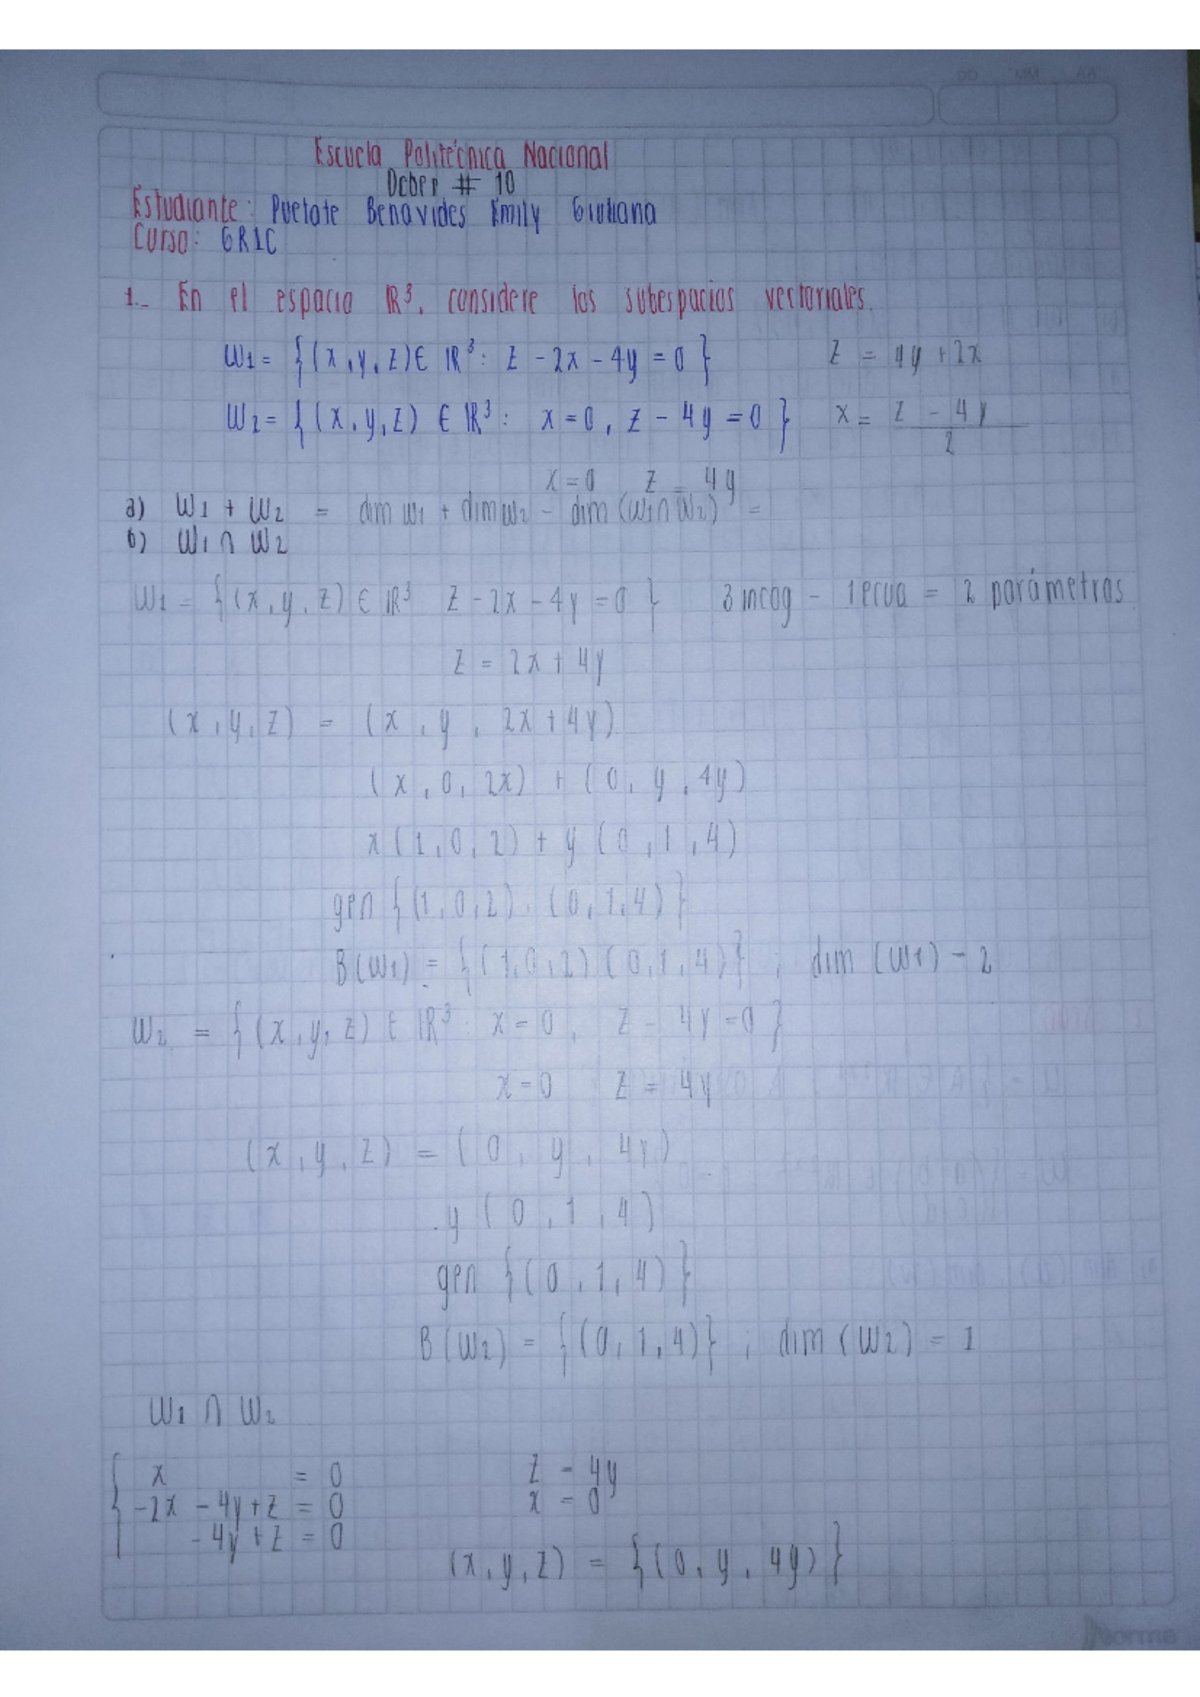 DD MM AA
Escuela Politécnica Nacional
Deber # 10
Estudiante: Puetate Benavides Emily Giuliana
Curso: GR1C
1.- En el espacio IR³, considere los subespacios vectoriales.
W1 = {(x,y,z) ∈ IR³: z - 2x - 4y = 0} z = 4y + 2x
W2 = {(x,y,z) ∈ IR³: x = 0, z - 4y = 0} x = z - 4y / 2
x = 0 z = 4y
a) W1 + W2 = dim W1 + dim W2 - dim (W1 ∩ W2) =
b) W1 ∩ W2
W1 = {(x,y,z) ∈ IR³ z - 2x - 4y = 0} 3 incog - 1 ecua = 2 parámetros
z = 2x + 4y
(x,y,z) = (x, y, 2x + 4y)
(x, 0, 2x) + (0, y, 4y)
x(1,0,2) + y(0,1,4)
gen {(1,0,2), (0,1,4)}
B(W1) = {(1,0,2)(0,1,4)} ; dim (W1) = 2
W2 = {(x,y,z) ∈ IR³: x = 0, z - 4y = 0}
x = 0 z = 4y
(x,y,z) = (0, y, 4y)
y(0,1,4)
gen {(0,1,4)}
B(W2) = {(0,1,4)} ; dim (W2) = 1
W1 ∩ W2
x = 0 z = 4y
-2x - 4y + z = 0 x = 0
-4y + z = 0
(x,y,z) = {(0, y, 4y)}
Norma